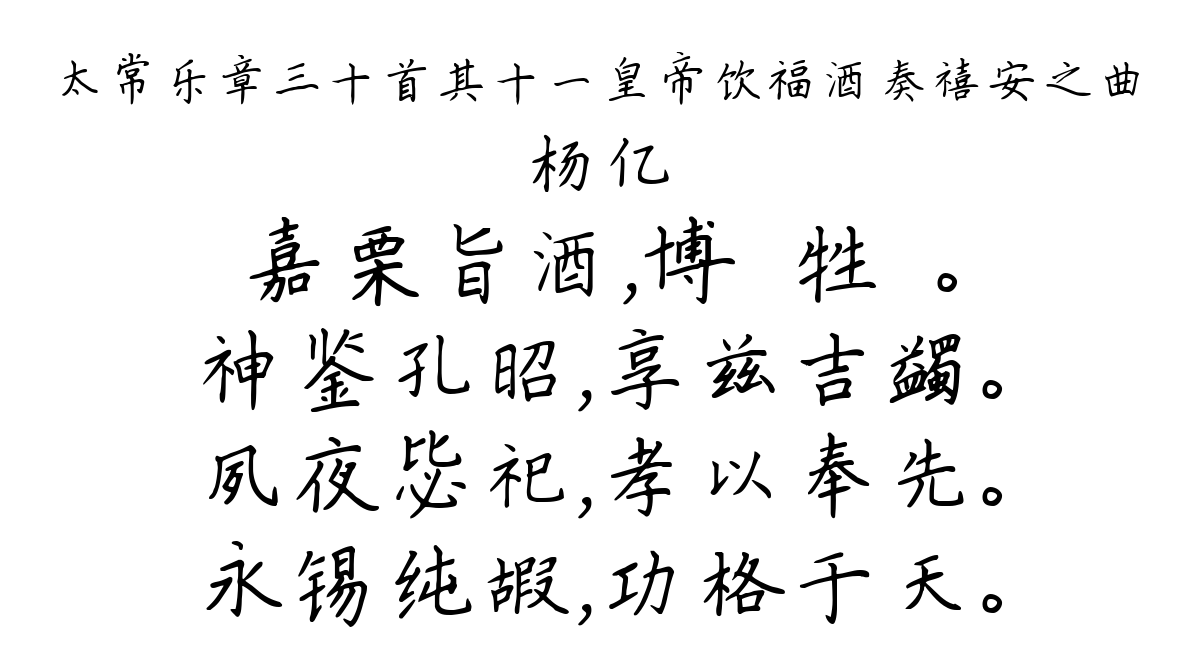 太常乐章三十首其十一皇帝饮福酒奏禧安之曲
杨亿
嘉栗旨酒,博 牲 。
神鉴孔昭,享兹吉蠲。
夙夜毖祀,孝以奉先。
永锡纯嘏,功格于天。